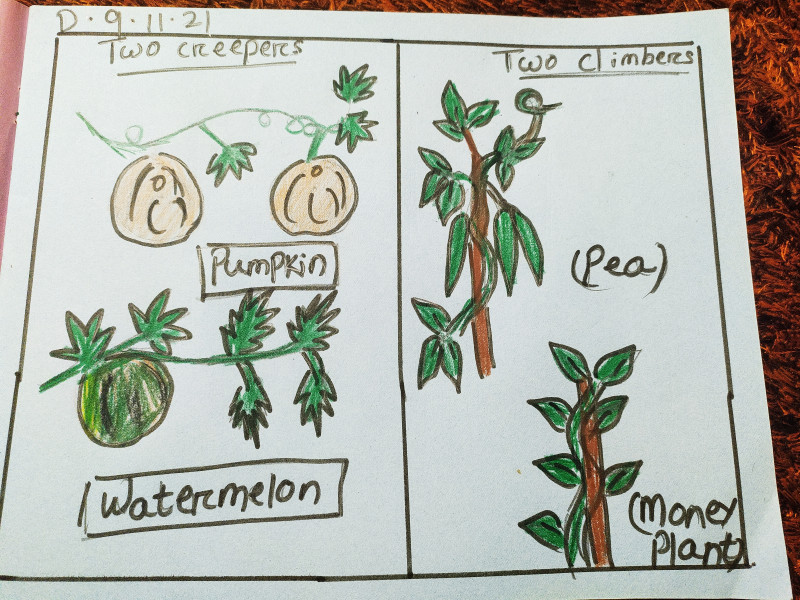 D. 9. 11. 21
Two creepers
Pumpkin
Watermelon
Two climbers
(Pea)
(Money
Plant)